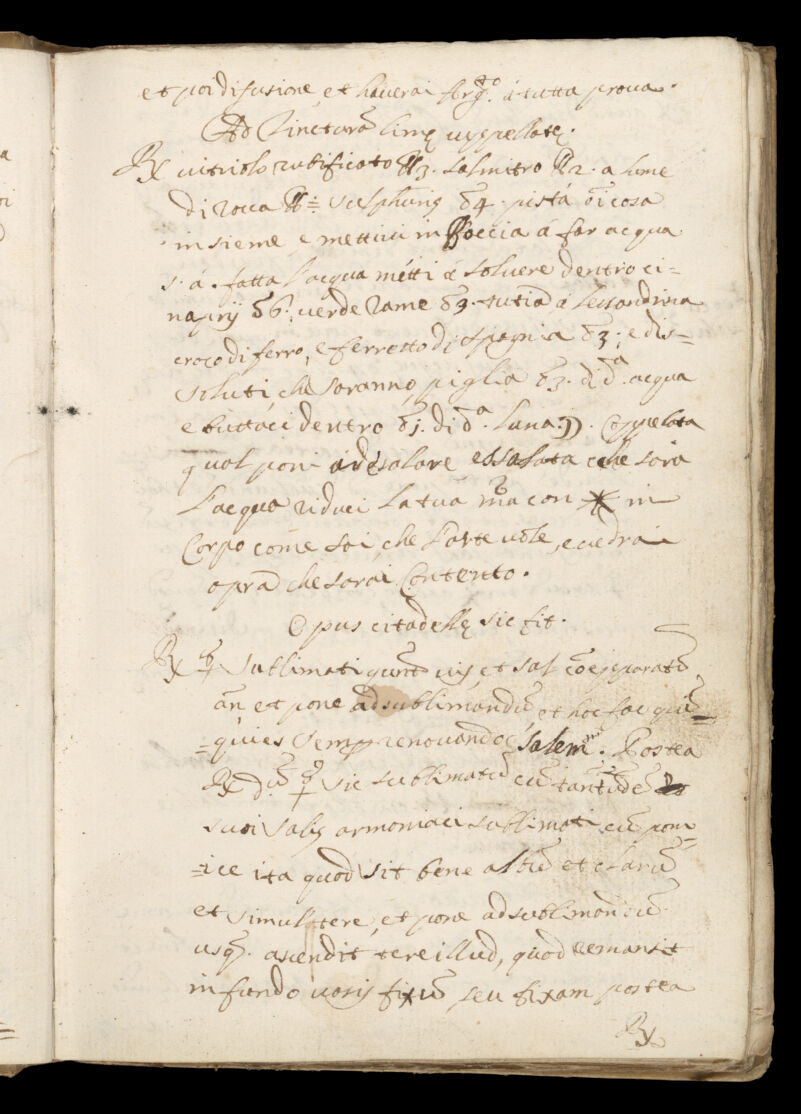 et poi di fusione, et haverai Arg.to á tutta prova.
Ad Tincturã limę cuppellatę.
℞ vitriolo rutificato ℔3. salnitro ℔2. alume
di rocca ℔ vi sulphuris ℥4. pistá õi cosa
insieme, e mettivi in Boccia á far acqua
s. á. fatta l'acqua métti á solvere dentro ci=
naprij ℥6. verde rame ℥9. tutia á lessandrina
croco di ferro, e ferretto di spagnia ℥3; e dis=
soluti che saranno piglia ℥3. di d.a acqua
e buttaci dentro ℥j. di d.a luna ☽. coppelata
qual poni ad esalare essalata che sora
l'acqua riduci la tua mã con ✶ in
Corpo come sai, che l'arte vole, e vedrai
oprã che sarai Contento.
Opus citadellę sic fit.
℞ ☿ sublimati quant vis, et sal cõe pparatũ
an et pone ad sublimandũ, et hoc fac quĩ=
=quies semp renovando salem. Postea
℞ dũ ☿ sic sublimatũ cũ tantũdẽ
suoi salis armoniaci sublimati cũ pom=
=ice ita quod sit bene albũ et clarũ
et simul tere, et pone ad sublimandũ
usq. ascendit tere illud, quod remansit
in fundo vasis fixũ seu fixam postea
℞